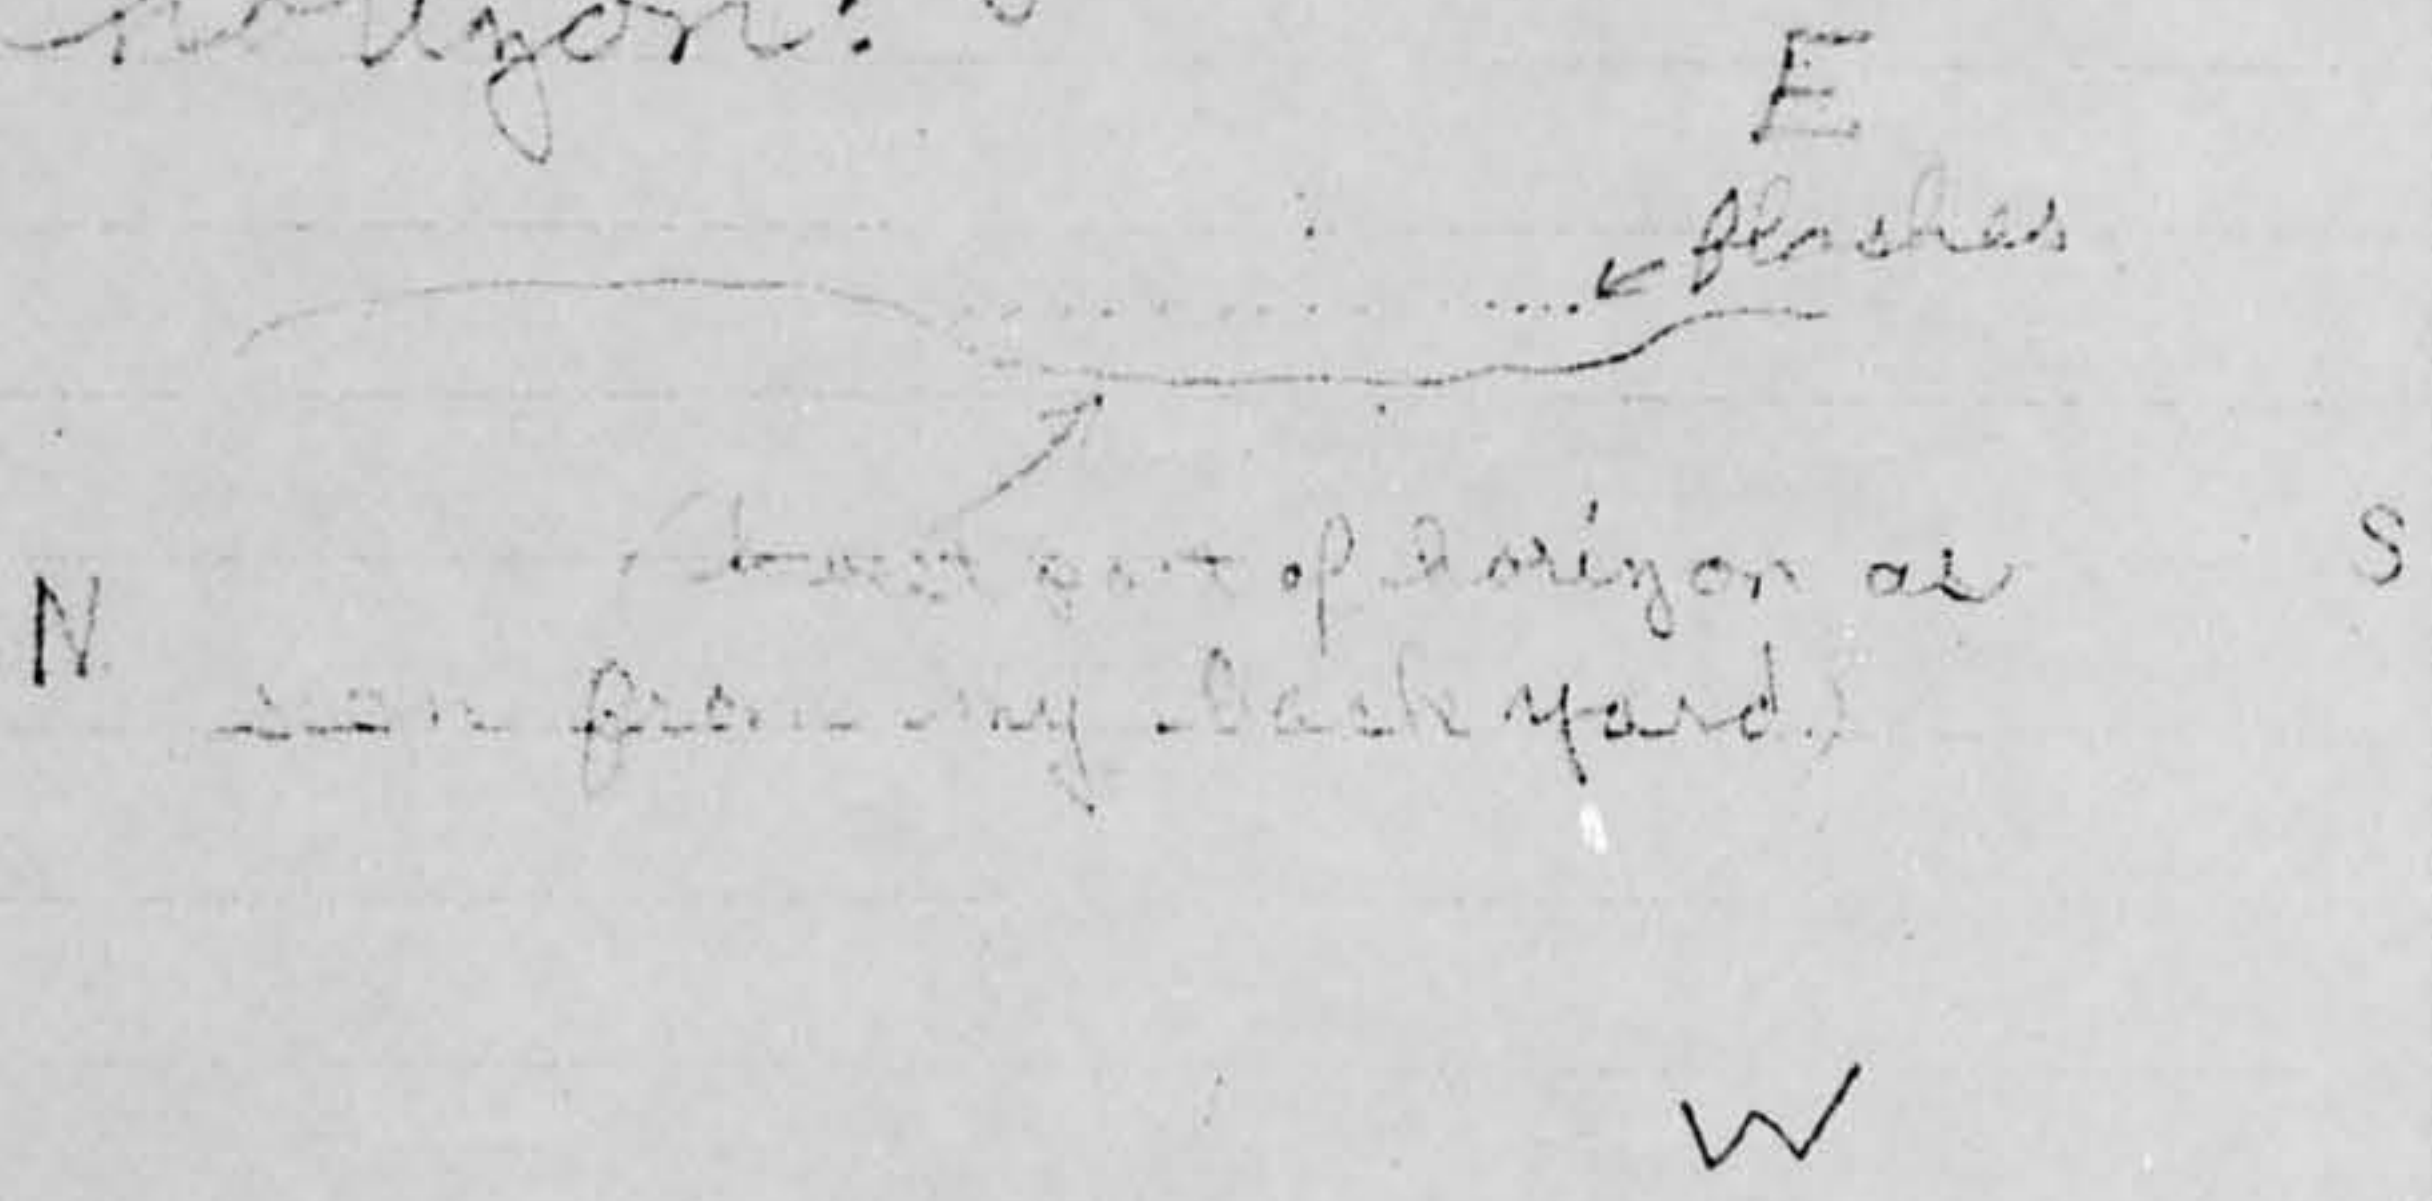 horizon.
E
flashes
(lowest part of horizon as
S
N
seen from my back yard.)
W